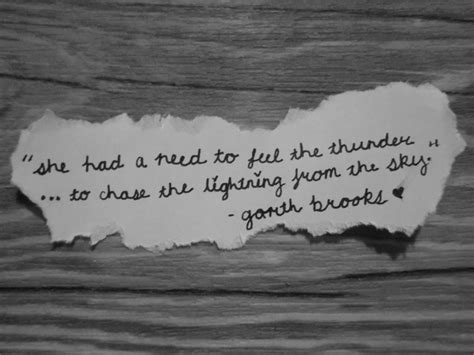 "she had a need to feel the thunder
... to chase the lightning from the sky."
- garith brooks ♥